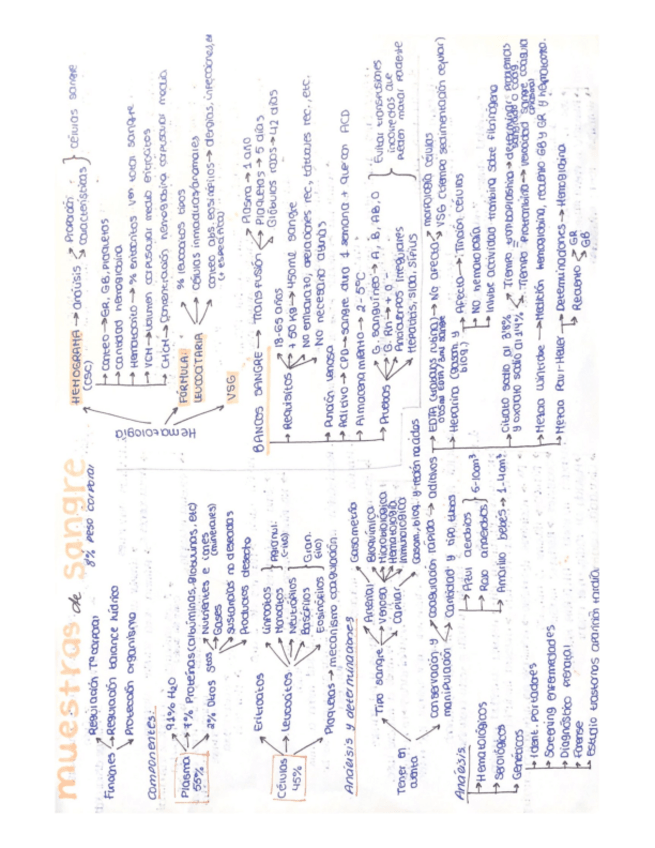 muestras de sangre
8% peso corporal
Funciones → Regulación Tª corporal
→ Regulación balance hídrico
→ Protección organismo
Componentes:
Plasma 55%
→ 91% H2O
→ 7% Proteínas (albúminas, globulinas, etc)
→ 2% Otros sltos
→ Nutrientes e iones (minerales)
→ Gases
→ Sustancias no deseadas
→ Productos desecho
Células 45%
→ Eritrocitos
→ Leucocitos
→ Linfocitos
→ Monocitos
} Agranul. (-no)
→ Neutrófilos
→ Basófilos
→ Eosinófilos
} Gran. (sí)
→ Plaquetas → mecanismo coagulación.
Análisis y determinaciones
Tener en cuenta
→ Tipo sangre
→ Arterial → Gasometría
→ Venosa
→ Bioquímica
→ Microbiológica
→ Hematológica
→ Inmunológica
→ Capilar → Gasom, bioq. y reacción rápidas
→ Conservación y manipulación
→ Coagulación rápida → aditivos
→ Cantidad y tipo tubos
→ Azul aerobios
→ Rojo anaerobios
} 6-10cm³
→ Amarillo bebés → 1-4cm³
Análisis:
→ Hematológicos
→ Serológicos
→ Genéticos
→ Ident. portadores
→ Screening enfermedades
→ Diagnóstico prenatal
→ Forense
→ Estudio trastornos aparición tardía.
Hematología
HEMOGRAMA (CSC) → Análisis
→ Proporción
→ Características
} células sangre
→ Conteo → GR, GB, plaquetas
→ Cantidad hemoglobina
→ Hematocrito → % eritrocitos ven total sangre.
→ VCM → Volumen corpuscular medio eritrocitos
→ CHCM → Concentración hemoglobina corpuscular media.
FÓRMULA LEUCOCITARIA
→ % leucocitos tipos
→ Células inmaduras/anormales
→ Conteo abs. eosinófilos → alergias, infecciones,
VSG
BANCOS SANGRE → Transfusión
→ Plasma → 1 año
→ Plaquetas → 5 días
→ Glóbulos rojos → 42 días
→ Requisitos
→ 18-65 años
→ +50 Kg → 450ml sangre
→ No embarazo, operaciones rec, tatuajes rec., etc.
→ No necesario ayunas
→ Punción venosa
→ Aditivo → CPD → sangre dura 1 semana + que con ACD
→ Almacenamiento → 2-5ºC
→ Pruebas
→ G. sanguíneo → A, B, AB, O
→ G. Rh → + o -
→ Anticuerpos irregulares
} Evitar transfusiones incorrectas que puedan matar paciente
→ Hepatitis, sida, sífilis
→ EDTA → No afecta
→ morfología células
→ VSG (tiempo sedimentación
→ Heparina (Gasom. y bioq.)
→ Afecta → Tinción células
→ No hematología
→ Inhibe actividad trombina sobre fibrinógeno
→ Citrato sodio al 3'8% y oxalato sodio al 1'4%
→ Tiempo tromboplastina → determinar problemas
→ Tiempo Protrombina → velocidad sangre coagula
→ Método Wintrobe → Medición hemoglobina, recuento GB y GR y hematocrito.
→ Método Paul-Heller
→ Determinaciones → Hemoglobina
→ Recuento
→ GR
→ GB